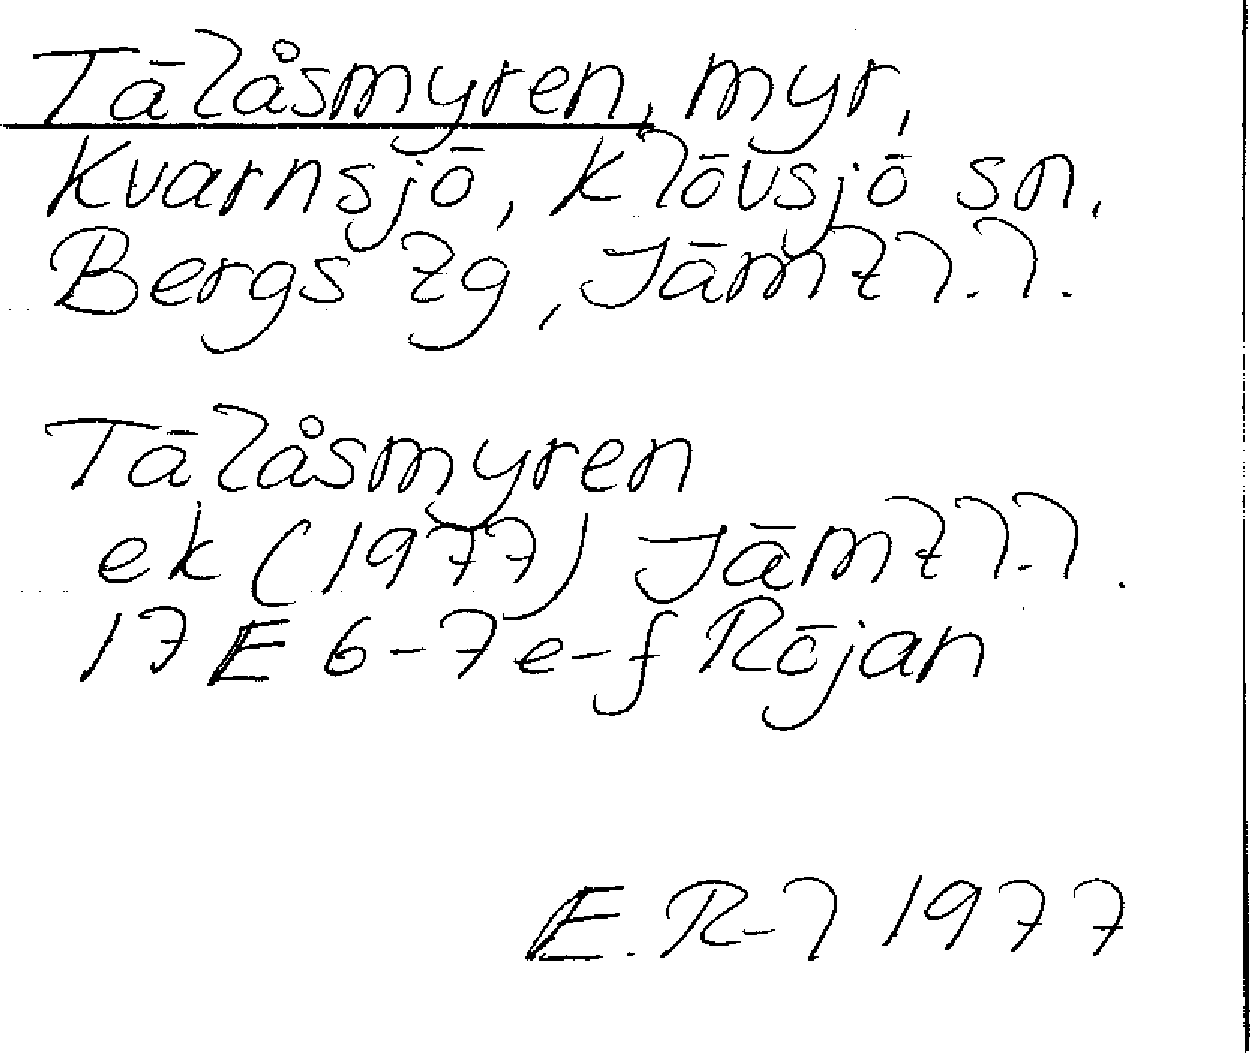 Tälåsmyren, myr,
Kvarnsjö, Klövsjö sn.
Bergs tg, Jämtl.l.
Tälåsmyren
ek (1977) Jämtl.l.
17 E 6-7 e-f Röjan
E. R-l 1977